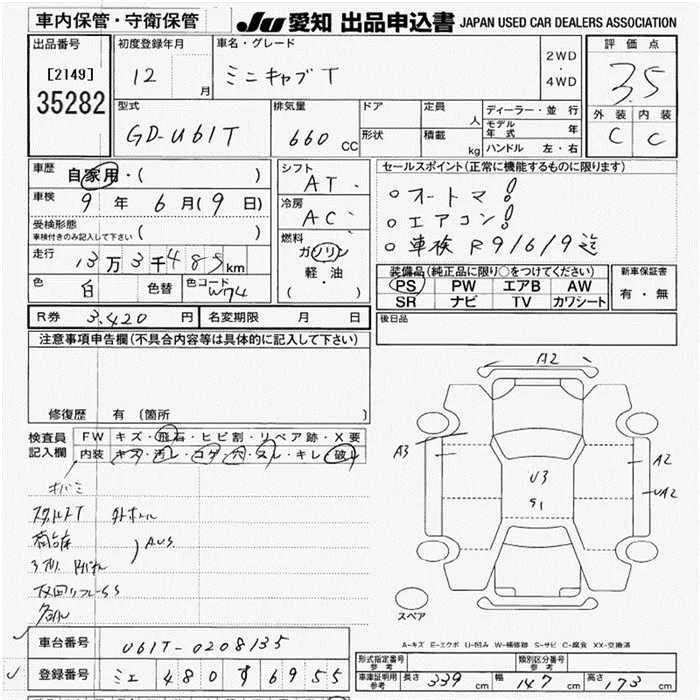 車内保管・守衛保管 JU 愛知 出品申込書 JAPAN USED CAR DEALERS ASSOCIATION
出品番号 [2149] 35282
初度登録年月 12 月
車名・グレード ミニキャブT
2WD ・ 4WD
評価点 3.5
外装 C 内装 C
型式 GD-U61T
排気量 660 CC
ドア 形状
定員 人
積載 kg
ディーラー・並行
モデル年式 年
ハンドル 左・右
車歴 自家用・( )
車検 9年 6月(9日)
受検形態 車検付きのみ記入して下さい ( )
走行 13万3千485km
色 白 色替 色コード W74
シフト AT
冷房 AC
燃料 ガソリン 軽・油 ( )
セールスポイント(正常に機能するものに限ります)
○オートマ!
○エアコン!
○車検 R9/6/9迄
装備品(純正品に限り○をつけてください)
PS PW エアB AW
SR ナビ TV カワシート
新車保証書 有・無
R券 3,420円 名変期限 月 日
後日品
注意事項申告欄(不具合内容等は具体的に記入して下さい)
修復歴 有 (箇所
検査員記入欄
FW キズ・飛石・ヒビ割・リペア跡・X要
内装 キズ・汚レ・コゲ・穴・スレ・キレ・破レ
A2
A3
A2
UA2
U3
S1
スペア
A-キズ E-エクボ U-凹み W-補修跡 S-サビ C-腐食 XX-交換済
車台番号 U61T-0208135
登録番号 ミエ 480 す 6955
形式指定番号 参考 類別区分番号 参考
車庫証明用 参考 長さ 339cm 幅 147cm 高さ 173cm